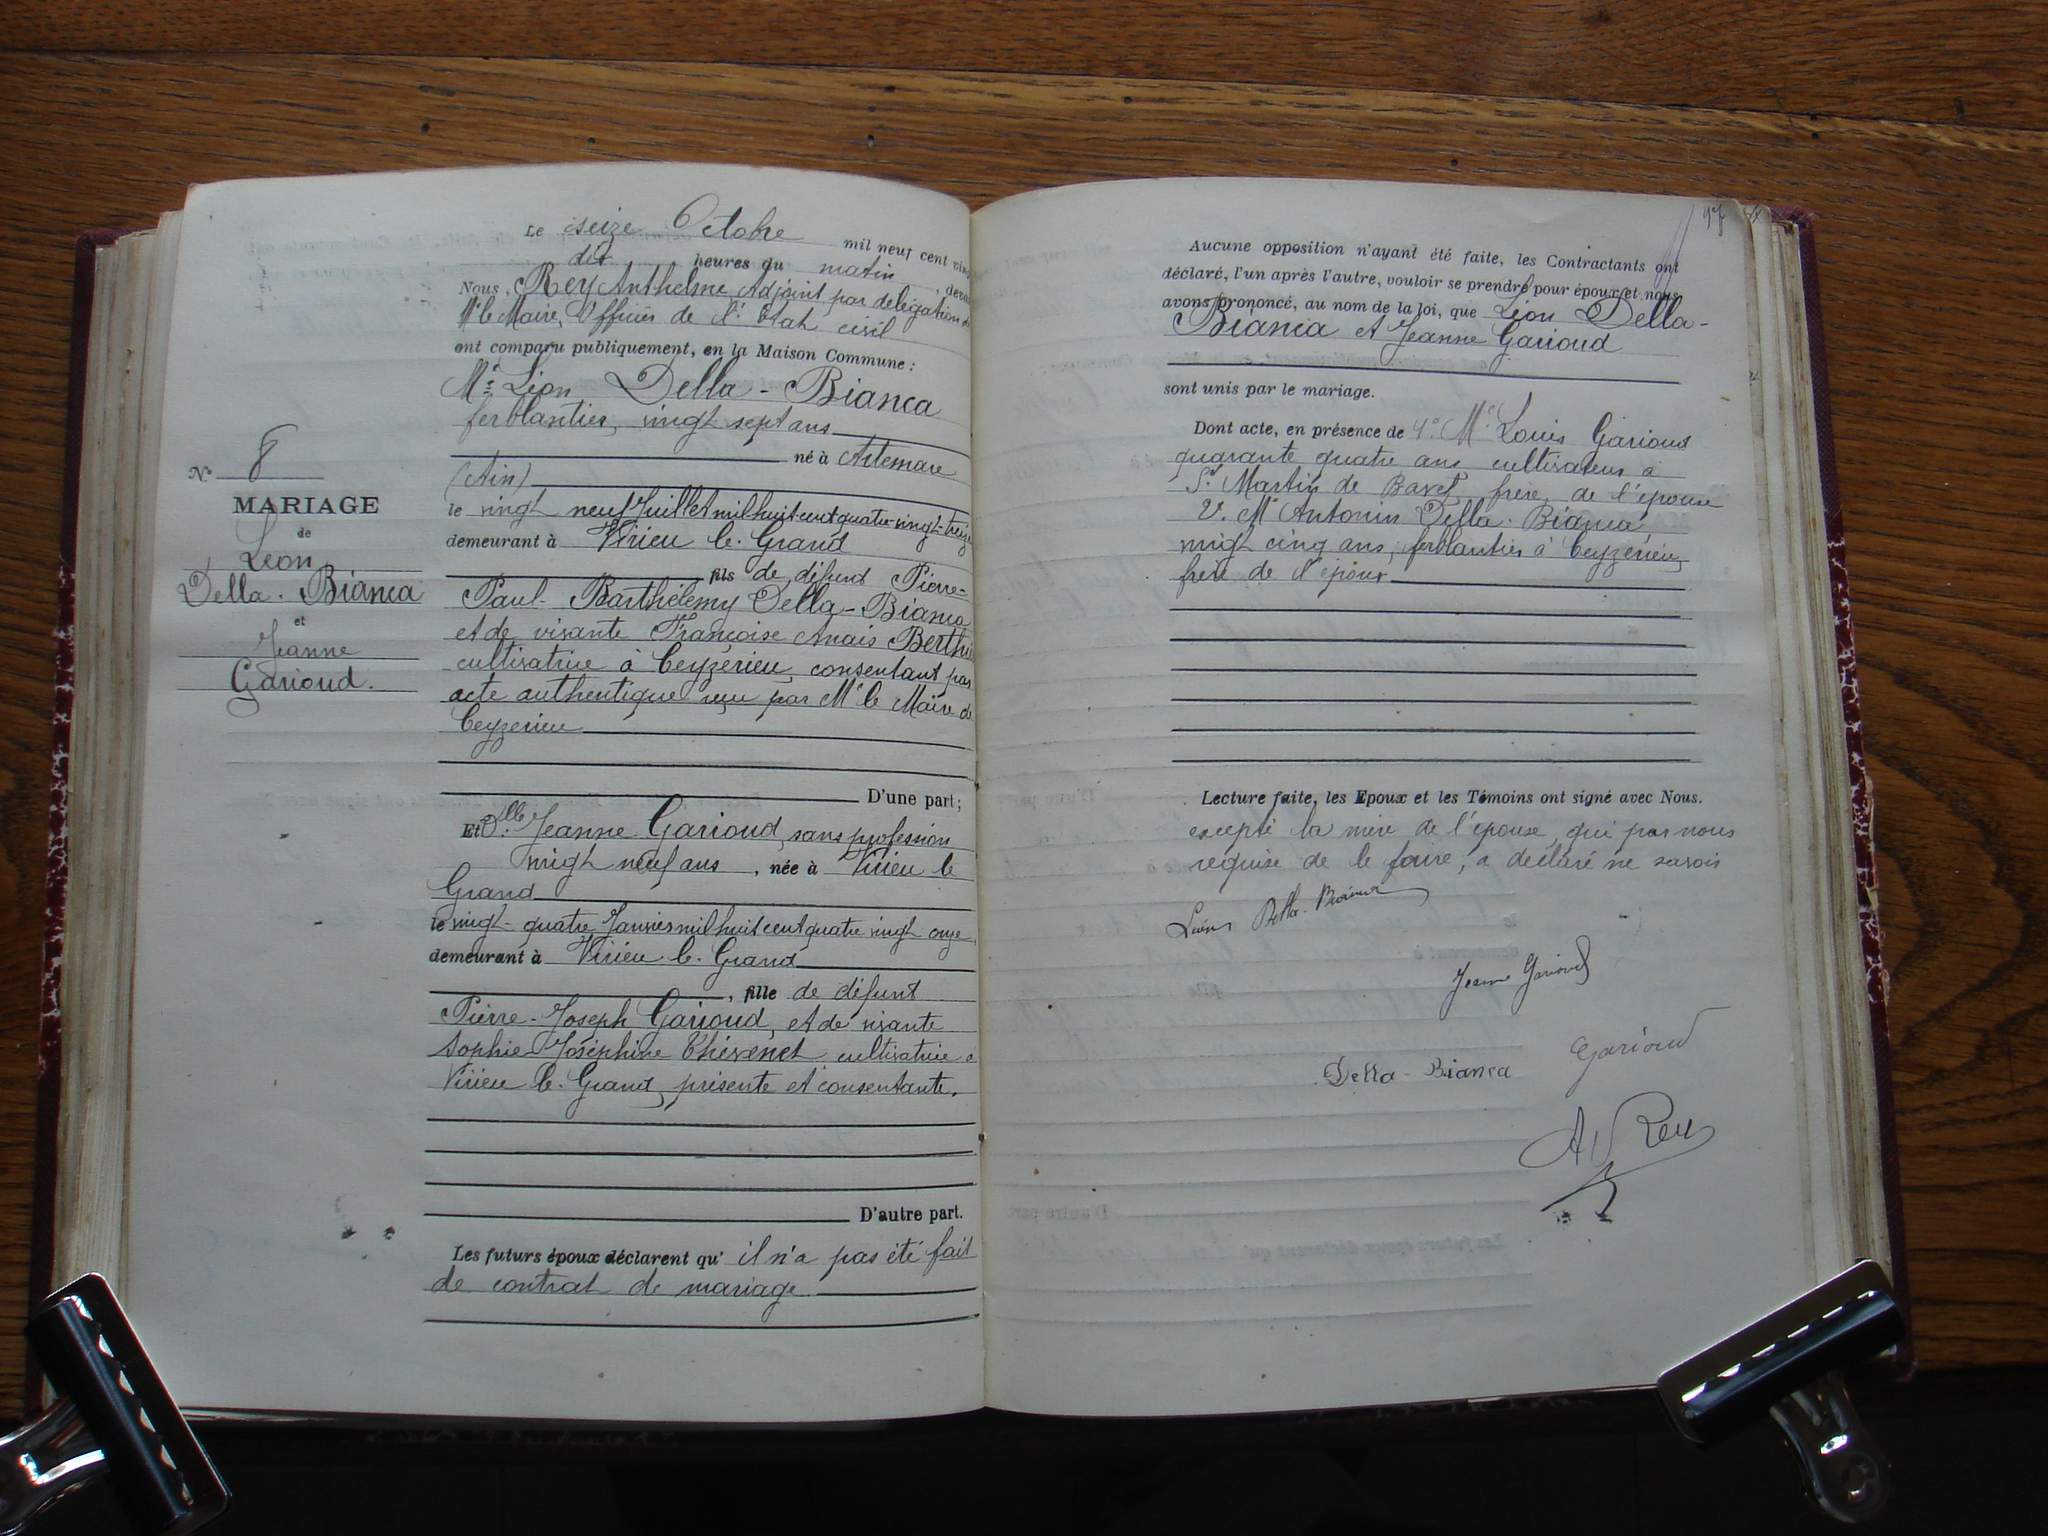 Le seize Octobre mil neuf cent
dix heures du matin
Nous, Rey Anthelme Adjoint par délégation de
Mr le Maire, Officier de l'Etat civil
ont comparu publiquement, en la Maison Commune :
Mr Léon Della-Bianca
ferblantier, vingt sept ans
né à Artemare
(Ain)
le vingt neuf Juillet mil huit cent quatre-vingt-treize
demeurant à Virieu-le-Grand
fils de défunt Pierre-
Paul-Barthélemy Della-Bianca
et de vivante Françoise Anaïs
cultivatrice à Ceyzérieu, consentant par
acte authentique reçu par Mr le Maire de
Ceyzerieu
D'une part ;
Et Dlle Jeanne Garioud, sans profession
vingt neuf ans, née à Virieu le
Grand
le vingt-quatre Janvier mil huit cent quatre vingt onze
demeurant à Virieu-le-Grand
, fille de défunt
Pierre-Joseph Garioud, et de vivante
Sophie-Joséphine Thévenet cultivatrice à
Virieu-le-Grand, présente et consentante.
D'autre part.
Les futurs époux déclarent qu' il n'a pas été fait
de contrat de mariage
N° 8
MARIAGE
de
Léon
Della-Bianca
et
Jeanne
Garioud.
97
Aucune opposition n'ayant été faite, les Contractants ont
déclaré, l'un après l'autre, vouloir se prendre pour époux et nous
avons prononcé, au nom de la loi, que Léon Della-
Bianca et Jeanne Garioud
sont unis par le mariage.
Dont acte, en présence de 1° Mr Louis Garioud
quarante quatre ans cultivateur à
St Martin de Bavel, frère de l'épouse
2° Mr Antonin Della-Bianca
vingt cinq ans, ferblantier à Ceyzérieu,
frère de l'époux
Lecture faite, les Epoux et les Témoins ont signé avec Nous.
excepté la mère de l'épouse, qui par nous
requise de le faire, a déclaré ne savoir
Léon Della-Bianca
Jeanne Garioud
Garioud
Della-Bianca
A Rey